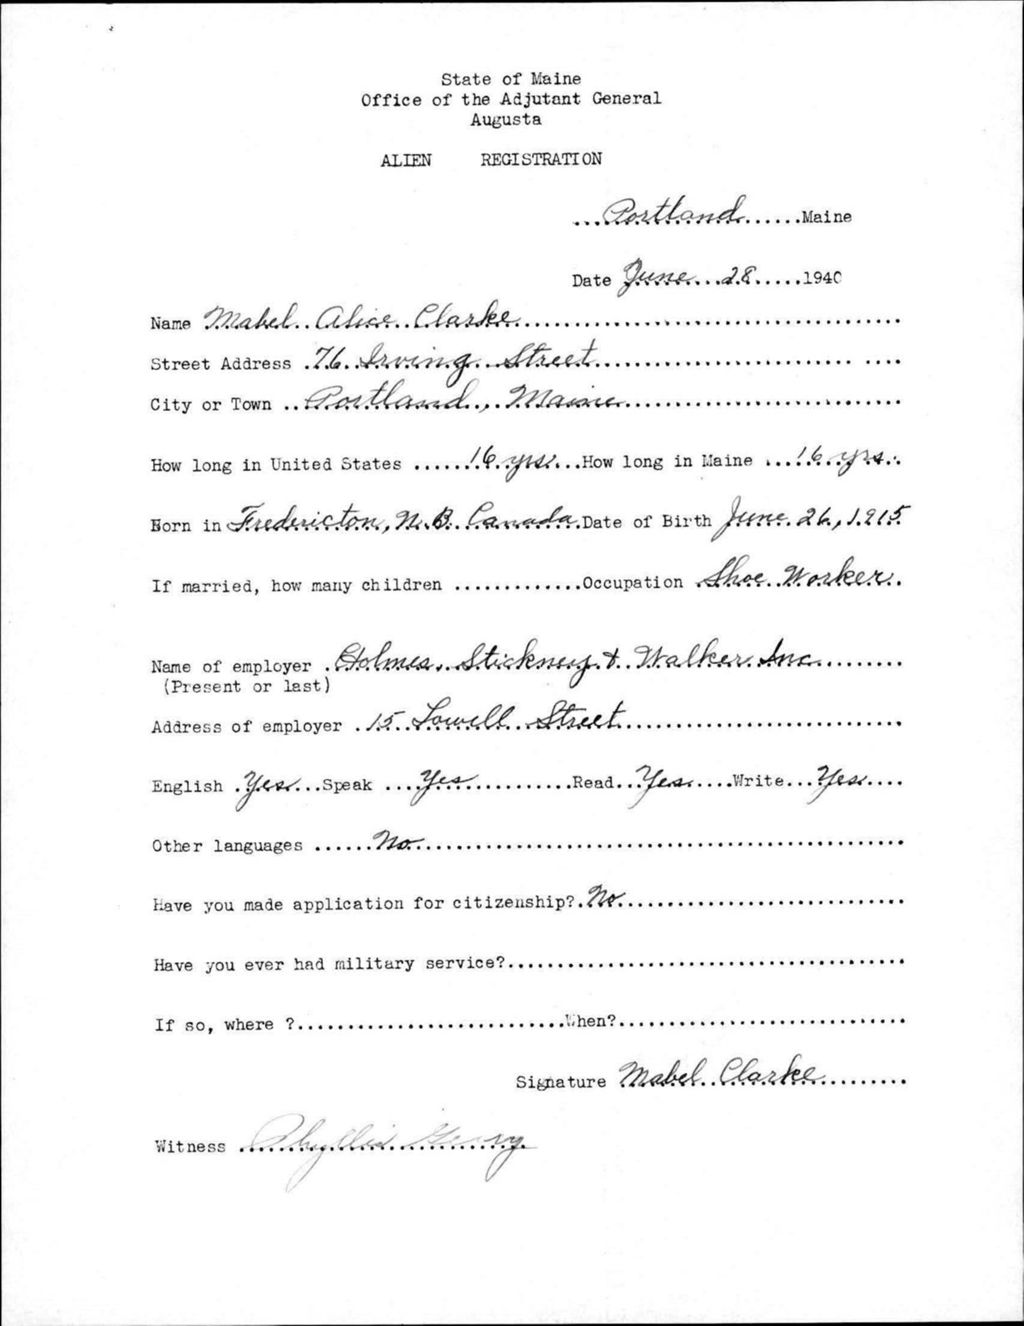 State of Maine
Office of the Adjutant General
Augusta
ALIEN REGISTRATION
...Portland......Maine
Date June...28.....1940
Name Mabel..Alice..Clarke
Street Address .76..Irving..Street
City or Town ..Portland., Maine
How long in United States ......16.yrs...How long in Maine ...16..yrs..
Born in Fredericton, N.B. Canada.Date of Birth June. 26, 1915
If married, how many children .............Occupation .Shoe..Worker.
Name of employer .Holmes..Stickney.&.Walker.Inc.
(Present or last)
Address of employer .15..Lowell..Street
English .Yes...Speak ....Yes...........Read...Yes.....Write...Yes....
Other languages ......No.
Have you made application for citizenship?.No.
Have you ever had military service?
If so, where ?...........................When?
Signature Mabel..Clarke
Witness Phyllis